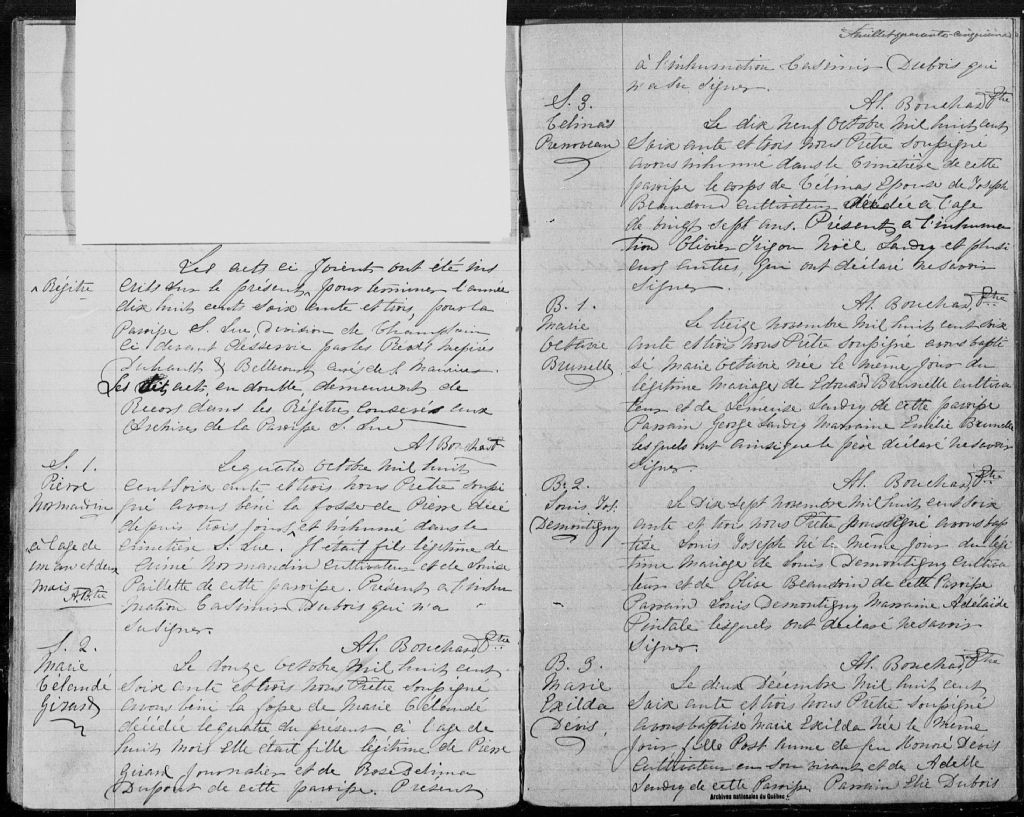 Les acts ci Joient ont été ins
^ Régitre
crits sur le présent ^ pour terminer l'année
dix huit cents soix ante et trois, pour la
Paroisse S. Luc, Division de Champlain
ci devant desservie par les Revds
Duhault & Bellecourt curé de S. Maurice.
Les dits acts en double demeurent de
Record dans les Régitres conservés aux
Archives de la Paroisse S. Luc
Al Bouchard
S. 1.
Pierre
Normandin
Le quatre Octobre Mil huit
cent soix ante et trois nous Prêtre soussi
gné avons béni la fosse de Pierre décé
depuis trois jours ^ et inhumé dans le
^ à l'age de
un an et deux
mois A.B. Ptre
cimetière S. Luc. Il était fils légitime de
Normandin cultivateur et de Louise
Paillette de cette paroisse. Présent à l'inhu
mation Casimir Dubois qui n'a
su signer.
Al. Bouchard Ptre
S. 2.
Marie
Célandé
Girard
Le douze Octobre Mil huit cent
soix ante et trois nous Prêtre soussigné
avons béni la fosse de Marie Célandé
décédée le quatre du présent à l'age de
huit mois Elle était fille légitime de Pierre
Girard Journalier et de Rose Delima
Dupont de cette paroisse. Présent
Feuillet quarante-cinquième
à l'inhumation Casimir Dubois qui
n'a su signer.
Al. Bouchard Ptre
S. 3.
Célinas
Prenoveau
Le dix neuf Octobre Mil huit cent
soix ante et trois nous Prêtre soussigné
avons inhumé dans le Cimetière de cette
paroisse le corps de Célinas Epouse de Joseph
Beaudoin cultivateur décédée à l'age
de vingt sept ans. Présents à l'inhuma
tion Olivier Frigon Noël Landry et plusi
eurs autres, qui ont déclaré ne savoir
signer.
Al. Bouchard Ptre
B. 1.
Marie
Octavie
Brunelle
Le treize novembre Mil huit cent soix
ante et trois nous Prêtre soussigné avons bapti
sé Marie Octavie née le même jour du
légitime Mariage de Edouard Brunelle cultiva
teur et de Landry de cette paroisse
Parrain George Landry Marraine Emélie Brunelle
lesquels ont ainsi que le père déclaré ne savoir
signer.
Al. Bouchard Ptre
B. 2.
Louis Jos.
Demontigny
Le Dix sept novembre Mil huit cent soix
ante et trois nous Prêtre poussigné avons bap
tisé Louis Joseph Né le même Jour du légi
time mariage de Louis Demontigny Cultiva
teur et de Olise Beaudoin de cette Paroisse
Parrain Louis Demontigny Marraine Adélaïde
Pintale lesquels ont déclaré ne savoir
signer.
Al. Bouchard Ptre
B. 3.
Marie
Exilda
Dévis
Le deux Décembre Mil huit cent
soix ante et trois nous Prêtre soussigné
avons baptisé Marie Exilda Née le même
Jour fille Post hume de feu Honoré Dévis
Cultivateur en son vivant et de Adelle
Landry de cette Paroisse, Parrain Elie Dubois
Archives nationales du Québec